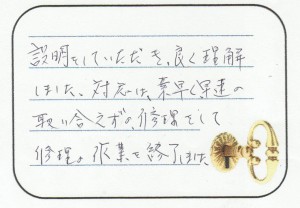 説明をしていただき、良く理解
しました。対応は、素早く早速の
取り合えずの、修理をして
修理の作業を終了しました